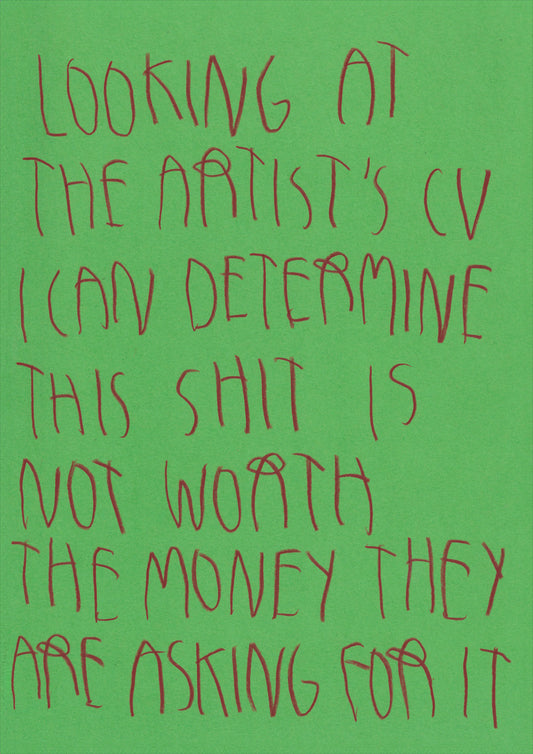 LOOKING AT
THE ARTIST'S CV
I CAN DETERMINE
THIS SHIT IS
NOT WORTH
THE MONEY THEY
ARE ASKING FOR IT